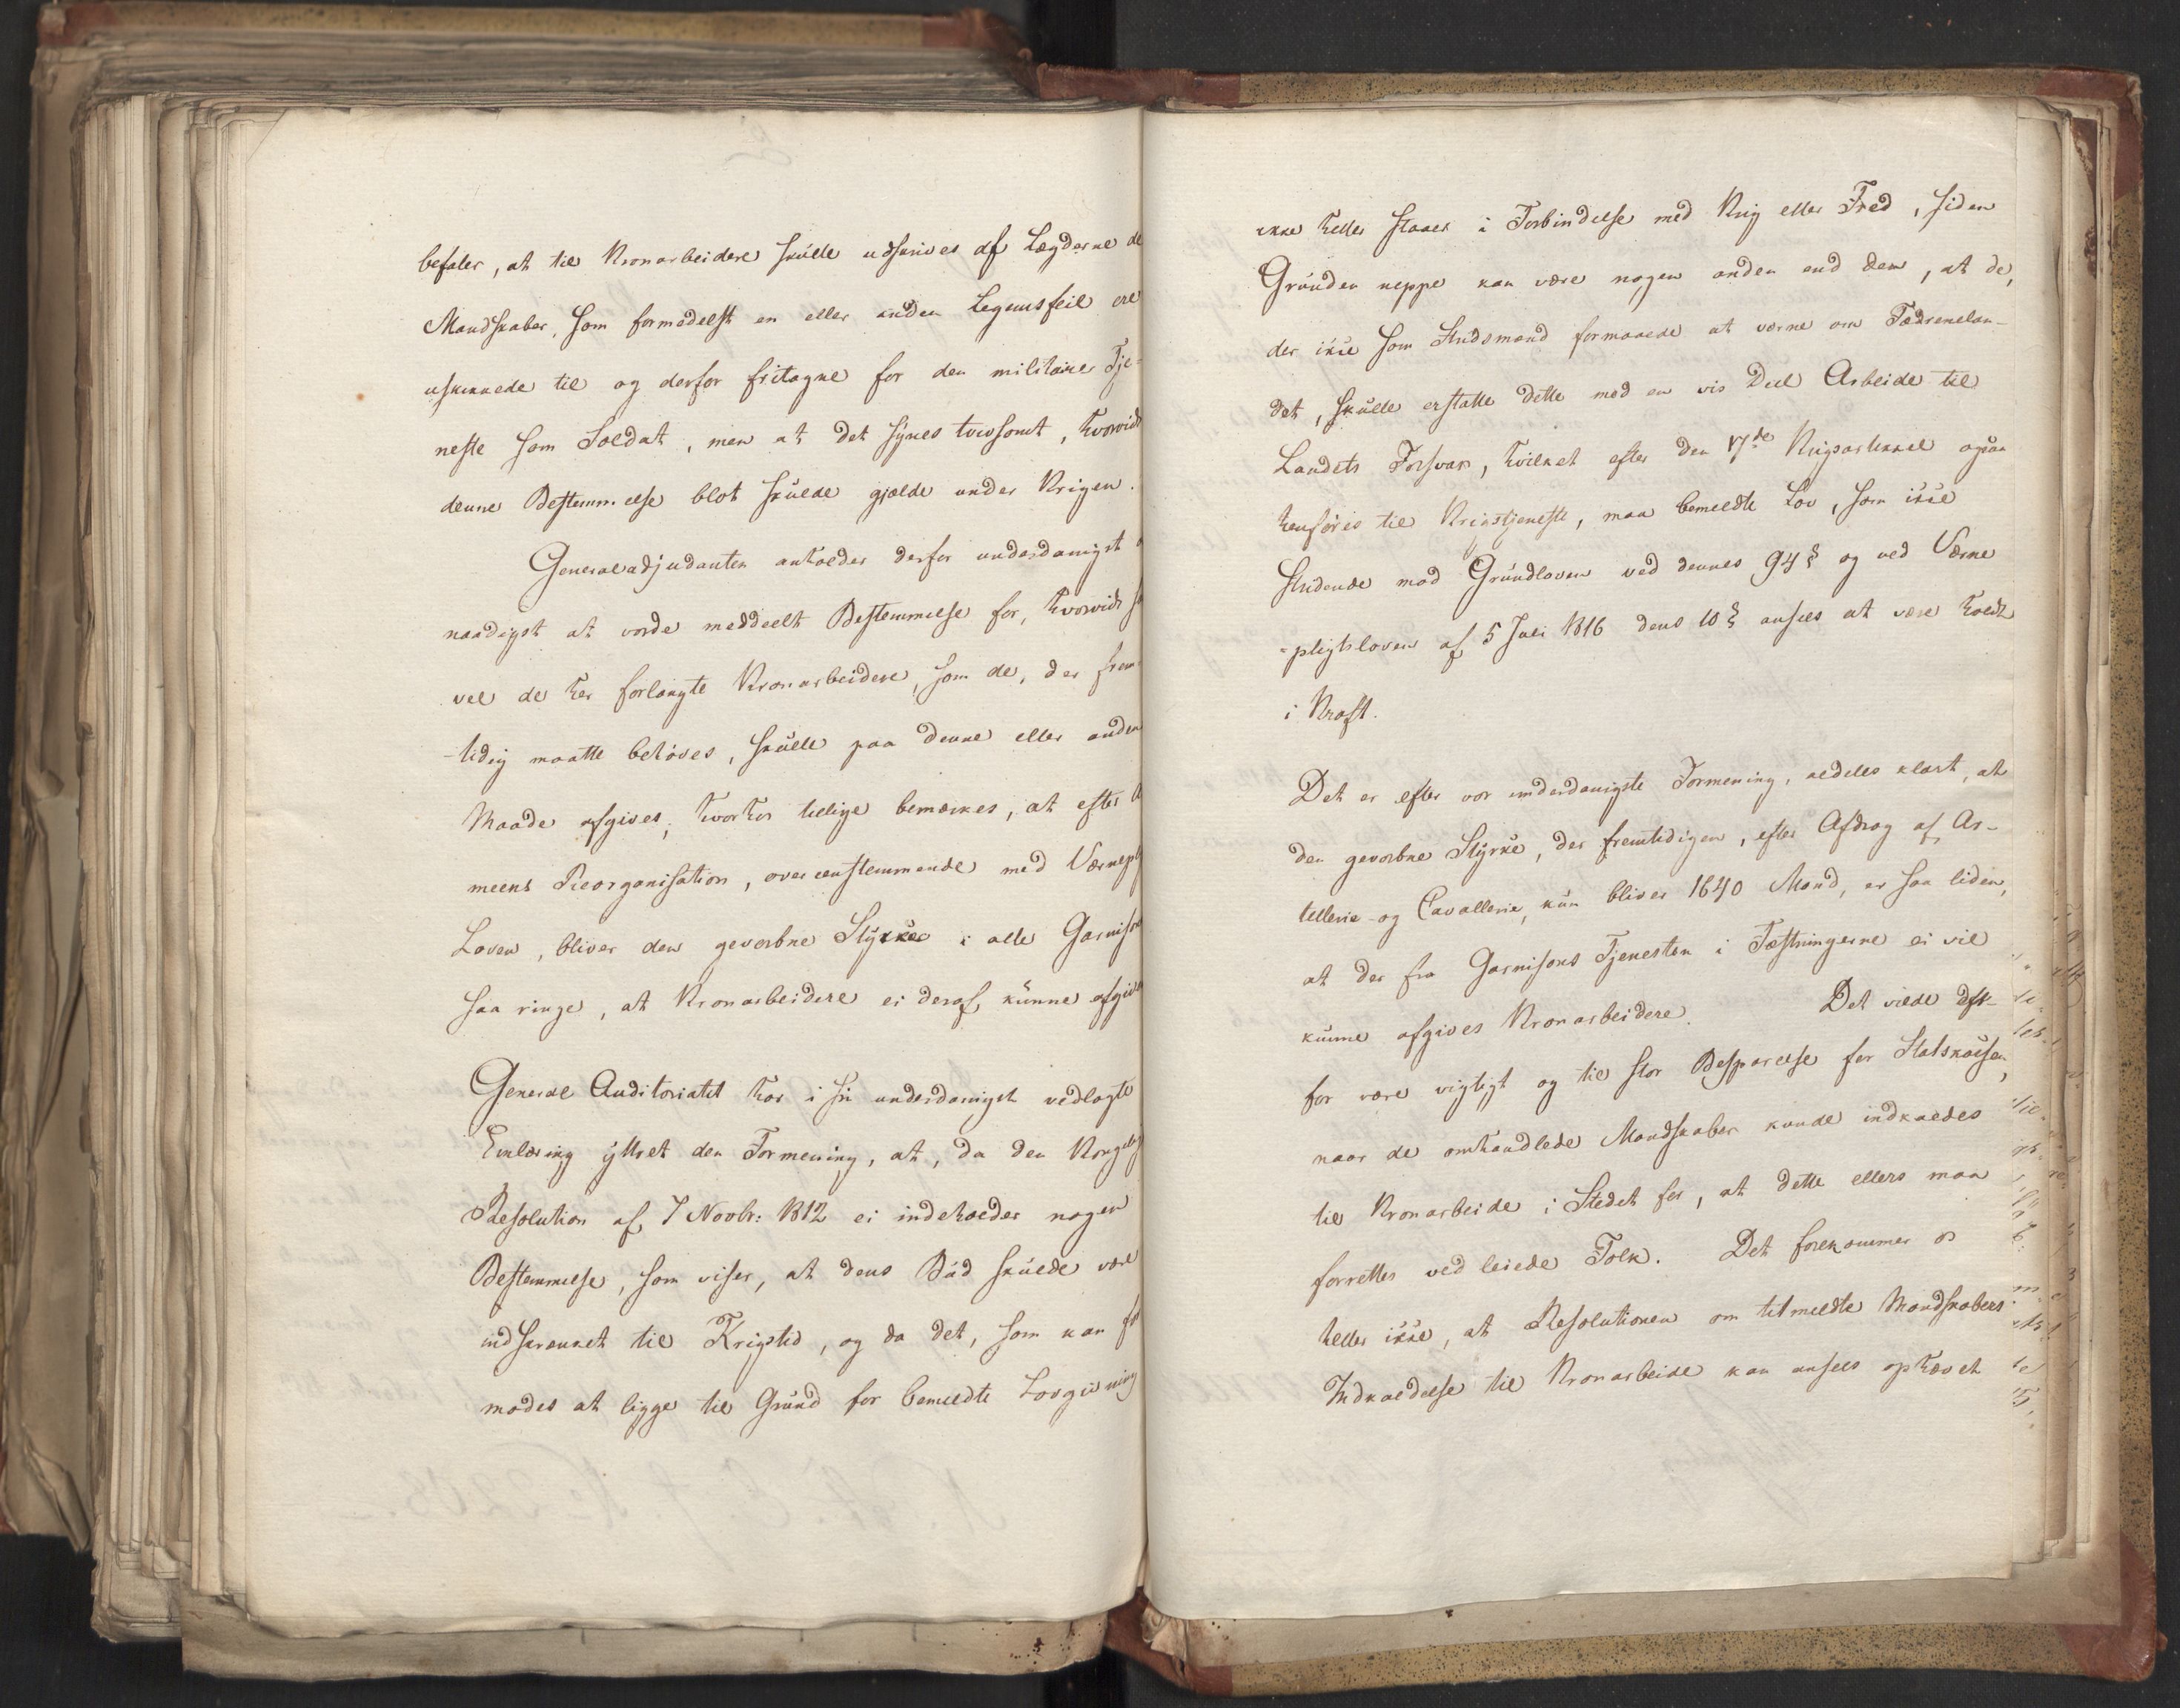 befaler, at til Kronarbeidere skulle udskrives af Lægderne de
Mandskaber, som formedelst en eller anden Legemsfeil ere
uskikkede til og derfor fritagne for den militaire Tje-
neste som Soldat, men at det synes tvivsomt, hvorvidt
denne Bestemmelse blot skulde gjælde under Krigen.
Generaladjudanten anholder derfor underdanigst
naadigst at vorde meddeelt Bestemmelse for, hvorvidt
vel de her forlangte Kronarbeidere, som de, der frem-
-tidig maatte behöves, skulle paa denne eller anden
Maade afgives; hvorhos tillige bemærkes, at efter
meens Reorganisation, overeensstemmende med Værnepl
Loven, bliver den gevorbne Styrke i alle Garnison
saa ringe, at Kronarbeidere ei deraf kunne afgives
General Auditoriatet har i sin underdanigst vedlagte
Erklæring yttret den Formening, at, da den Kongelig
Resolution af 7 Novbr: 1812 ei indeholder nogen
Bestemmelse, som viser, at dens Bud skulde være
indskrænket til Krigstid, og da det, som kan for
modes at ligge til Grund for bemeldte Lovgivning
ikke heller staaer i Forbindelse med Krig eller Fred, siden
Grunden neppe kan være nogen anden end den, at de,
der ikke som Stridsmænd formaaede at værne om Fædrenelan-
det, skulle erstatte dette med en vis Deel Arbeide til
Landets Forsvar, hvilket efter den 17de Krigsartikkel ogsaa
henföres til Krigstjeneste, maa bemeldte Lov, som ikke
stridende mod Grundloven ved dennes 94 § og ved Værne
-pligtsloven af 5 Juli 1816 dens 10 § ansees at være holdt
i Kraft.
Det er efter vor underdanigste Formening, aldeles klart, at
den gevorbne Styrke, der fremtidigen, efter Afdrag af Ar-
tillerie- og Cavallerie, kun bliver 1640 Mand, er saa liden,
at der fra Garnisons Tjenesten i Fæstningerne ei vil
kunne afgives Kronarbeidere. Det vilde der-
for være vigtigt og til stor Besparelse for Statskassen,
naar de omhandlede Mandskaber kunde indkaldes
til Kronarbeide i Stedet for, at dette ellers maa
forrettes ved leiede Folk. Det forekommer os
heller ikke, at Resolutionen om titmeldte Mandskabers
Indkaldelse til Kronarbeide kan ansees ophævet